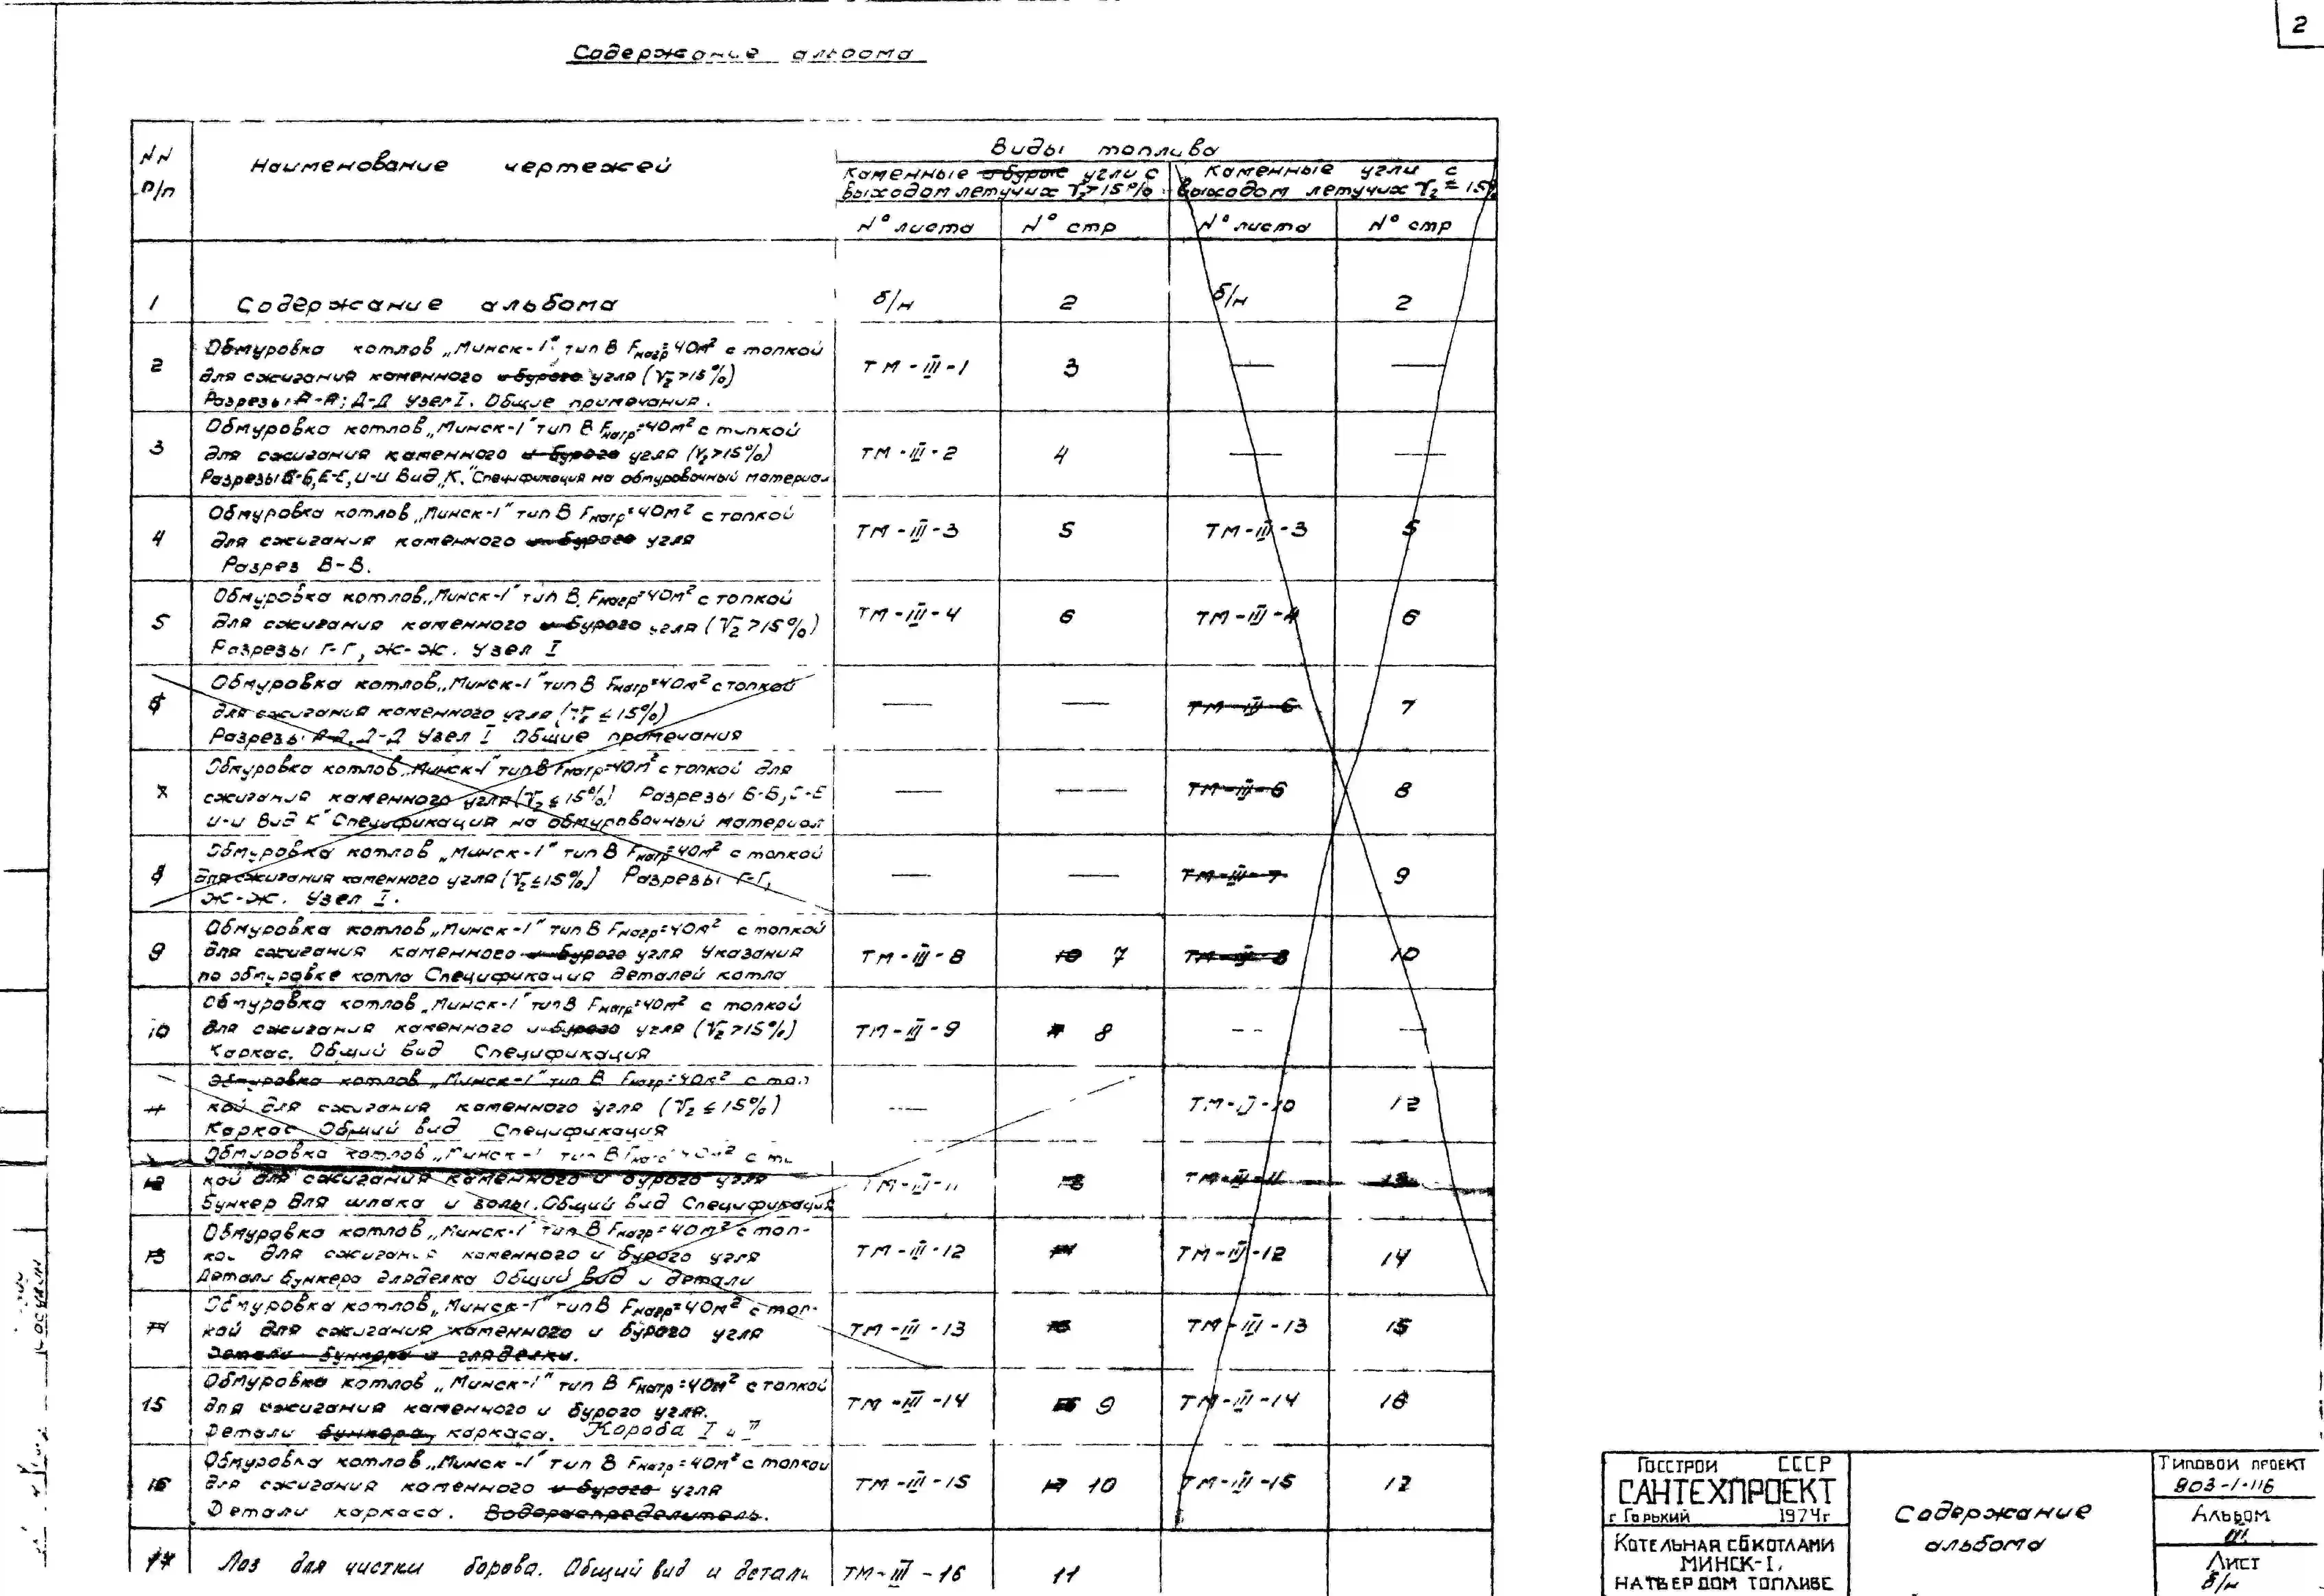 2
Содержание альбома
NN п/п
Наименование чертежей
Виды топлива
Каменные и бурые угли с
выходом летучих V2>15%
Каменные угли с
выходом летучих V2≤15%
N° листа N° стр N° листа N° стр
1 Содержание альбома б/н 2 б/н 2
Обмуровка котлов „Минск-1" тип В Fнагр=40м² с топкой
2 для сжигания каменного и бурого угля (V2>15%) ТМ-III-1 3 — —
Разрезы А-А; Д-Д Узел I. Общие примечания.
Обмуровка котлов „Минск-1" тип В Fнагр=40м² с топкой
3 для сжигания каменного и бурого угля (V2>15%) ТМ-III-2 4 — —
Разрезы Б-Б, Е-Е, И-И Вид „К." Спецификация на обмуровочный материал
Обмуровка котлов „Минск-1" тип В Fнагр=40м² с топкой
4 для сжигания каменного и бурого угля ТМ-III-3 5 ТМ-III-3 5
Разрез В-В.
Обмуровка котлов „Минск-1" тип В. Fнагр=40м² с топкой
5 для сжигания каменного и бурого угля (V2>15%) ТМ-III-4 6 ТМ-III-4 6
Разрезы Г-Г, Ж-Ж. Узел I
Обмуровка котлов „Минск-1" тип В Fнагр=40м² с топкой
6 для сжигания каменного угля (V2≤15%) — — 7
Разрезы А-А, Д-Д Узел I Общие примечания
Обмуровка котлов „Минск-1" тип В Fнагр=40м² с топкой для
7 сжигания каменного угля (V2≤15%) Разрезы Б-Б, Е-Е — — ТМ-III-6 8
И-И Вид К" Спецификация на обмуровочный материал
Обмуровка котлов „Минск-1" тип В Fнагр=40м² с топкой
8 для сжигания каменного угля (V2≤15%) Разрезы Г-Г, — — ТМ-III-7 9
Ж-Ж. Узел I.
Обмуровка котлов „Минск-1" тип В Fнагр=40м² с топкой
9 для сжигания каменного и бурого угля Указания ТМ-III-8 10 7 ТМ-III-8 10
по обмуровке котла Спецификация деталей котла
Обмуровка котлов „Минск-1" тип В Fнагр=40м² с топкой
10 для сжигания каменного и бурого угля (V2>15%) ТМ-III-9 8 — —
Каркас. Общий вид Спецификация
Обмуровка котлов „Минск-1" тип В Fнагр=40м² с топ
11 кой для сжигания каменного угля (V2≤15%) — ТМ-III-10 12
Каркас Общий вид Спецификация
Обмуровка котлов „Минск-1 тип В Fнагр=40м² с
12 кой для сжигания каменного и бурого угля ТМ-III-11 13 ТМ-III-11 13
Бункер для шлака и золы. Общий вид Спецификация
Обмуровка котлов „Минск-1" тип В Fнагр=40м² с топ-
13 кой для сжигания каменного и бурого угля ТМ-III-12 14 ТМ-III-12 14
Детали бункера гляделка Общий вид и детали
Обмуровка котлов „Минск-1" тип В Fнагр=40м² с топ-
14 кой для сжигания каменного и бурого угля ТМ-III-13 15 ТМ-III-13 15
Детали бункера и гляделки.
Обмуровка котлов „Минск-1" тип В Fнагр=40м² с топкой
15 для сжигания каменного и бурого угля. ТМ-III-14 16 9 ТМ-III-14 16
Детали бункера, каркаса. Короба I и II
Обмуровка котлов „Минск-1" тип В Fнагр=40м² с топкой
16 для сжигания каменного и бурого угля ТМ-III-15 17 10 ТМ-III-15 17
Детали каркаса. Водораспределитель.
17 Лаз для чистки борова. Общий вид и детали ТМ-III-16 11
Госстрой СССР
САНТЕХПРОЕКТ
г Горький 1974г
Котельная с 6 котлами
Минск-1,
на твердом топливе
Содержание
альбома
Типовой проект
903-1-116
Альбом
III
Лист
б/н